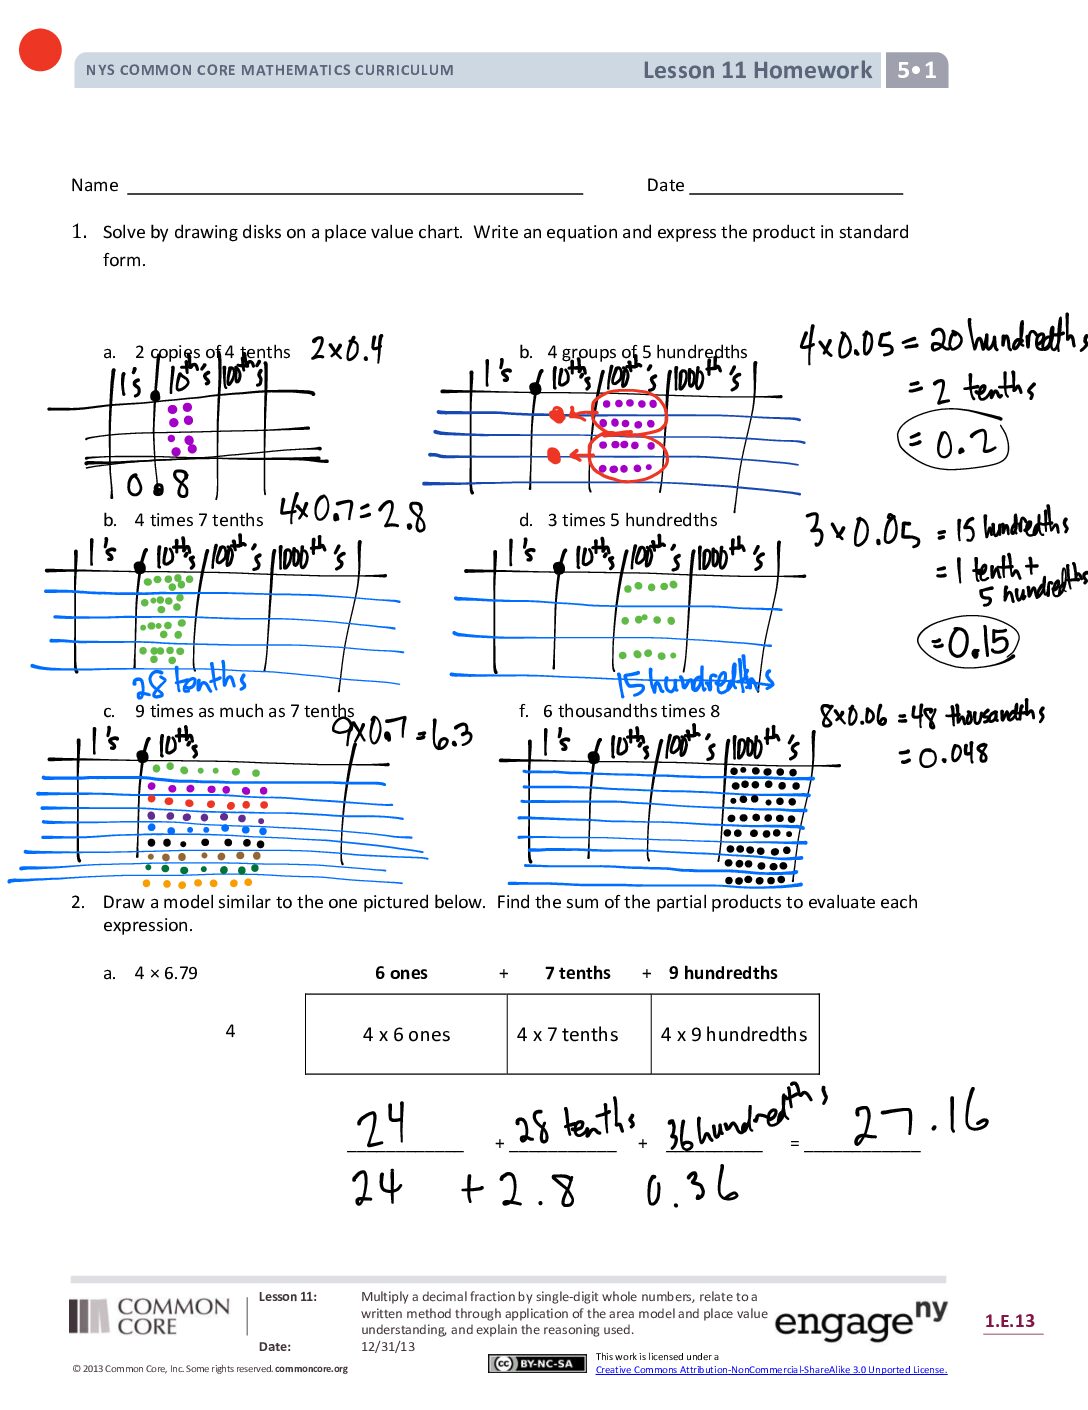 NYS COMMON CORE MATHEMATICS CURRICULUM
Lesson 11 Homework 5•1
Name
Date
1. Solve by drawing disks on a place value chart. Write an equation and express the product in standard
form.
a. 2 copies of 4 tenths 2x0.4
1's 10th's 100th's
0.8
b. 4 groups of 5 hundredths
1's 10th's 100th's 1000th's
4x0.05 = 20 hundredths
= 2 tenths
= 0.2
b. 4 times 7 tenths 4x0.7=2.8
1's 10th's 100th's 1000th's
28 tenths
d. 3 times 5 hundredths
1's 10th's 100th's 1000th's
15 hundredths
3x0.05 = 15 hundredths
= 1 tenth +
5 hundredths
=0.15
c. 9 times as much as 7 tenths 9x0.7=6.3
1's 10th's
f. 6 thousandths times 8
1's 10th's 100th's 1000th's
8x0.06 = 48 thousandths
= 0.048
2. Draw a model similar to the one pictured below. Find the sum of the partial products to evaluate each
expression.
a. 4 × 6.79
6 ones + 7 tenths + 9 hundredths
4
4 x 6 ones 4 x 7 tenths 4 x 9 hundredths
24 + 28 tenths + 36 hundredths = 27.16
24 + 2.8 0.36
COMMON CORE
Lesson 11:
Multiply a decimal fraction by single-digit whole numbers, relate to a
written method through application of the area model and place value
understanding, and explain the reasoning used.
Date: 12/31/13
engage ny
1.E.13
© 2013 Common Core, Inc. Some rights reserved. commoncore.org
cc BY-NC-SA
This work is licensed under a
Creative Commons Attribution-NonCommercial-ShareAlike 3.0 Unported License.